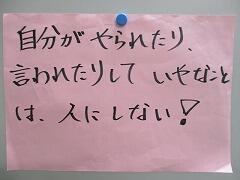 自分が やられたり、
言われたりして いやなこと
は、人にしない!